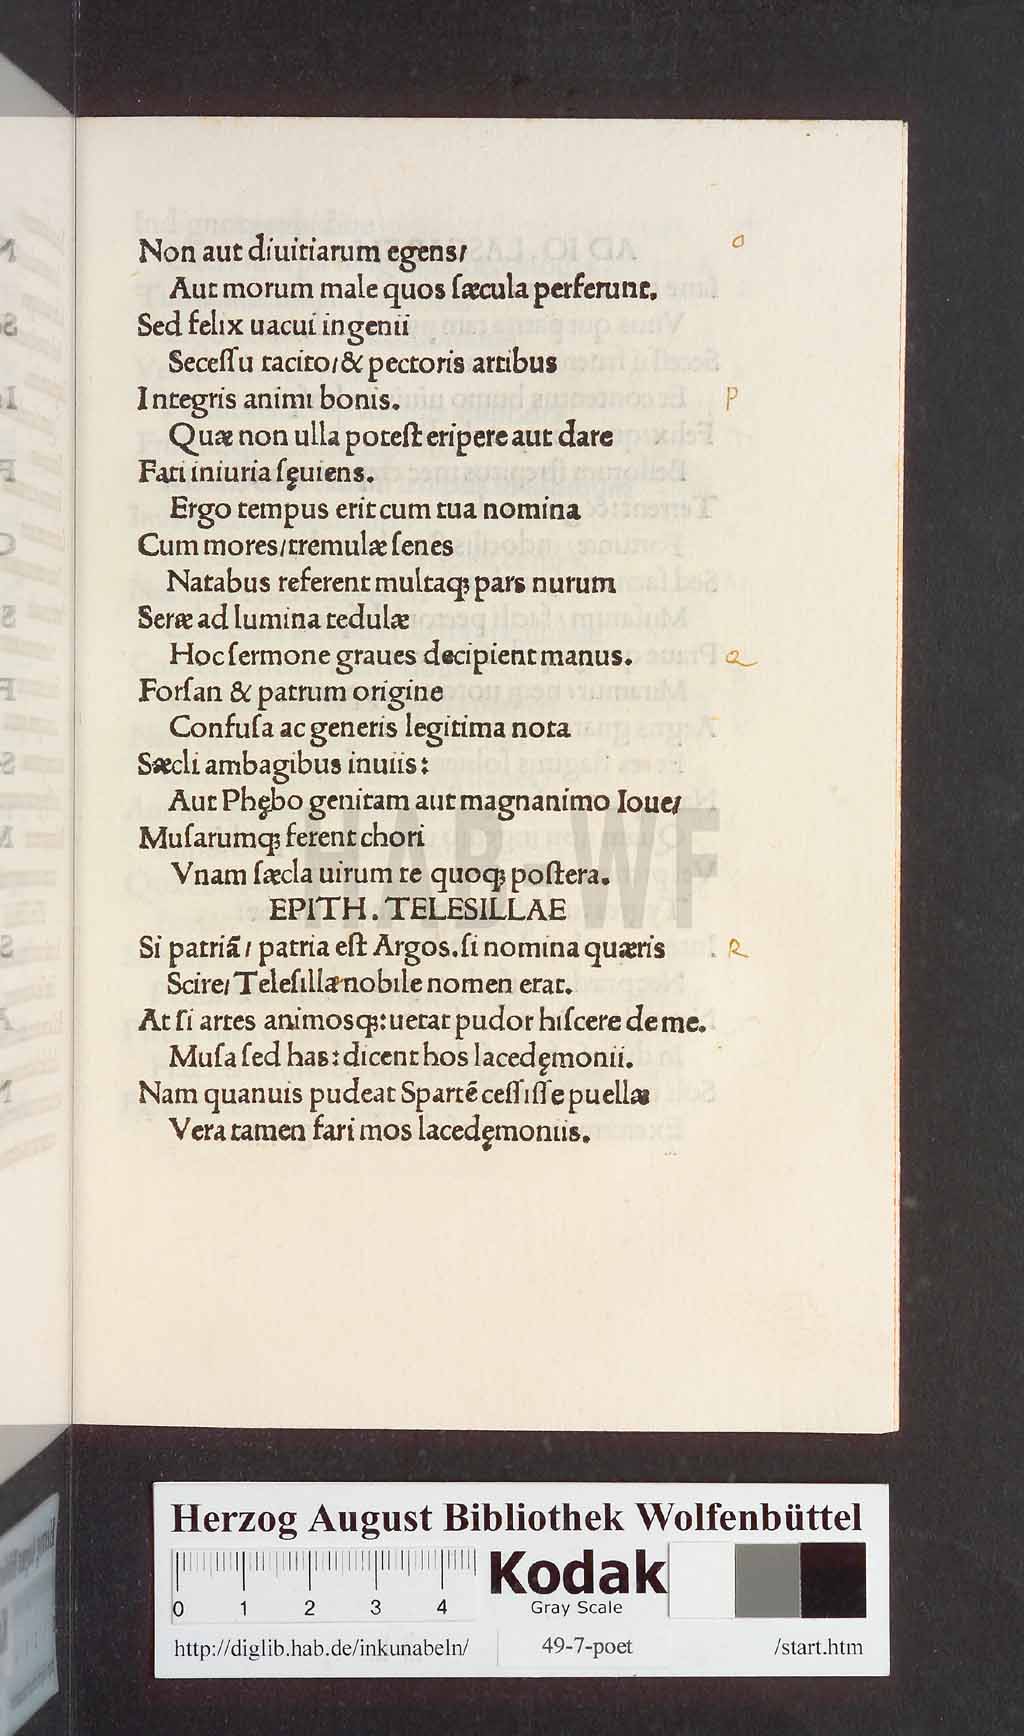 Non aut diuitiarum egens/
Aut morum male quos sæcula perferunt.
Sed felix uacui ingenii
Secessu tacito/ & pectoris artibus
Integris animi bonis.
Quæ non ulla potest eripere aut dare
Fati iniuria sęuiens.
Ergo tempus erit cum tua nomina
Cum mores/ tremulæ senes
Natabus referent multaqꝫ pars nurum
Seræ ad lumina tedulæ
Hoc sermone graues decipient manus.
Forsan & patrum origine
Confusa ac generis legitima nota
Sæcli ambagibus inuiis:
Aut Phębo genitam aut magnanimo Ioue/
Musarumqꝫ ferent chori
Vnam sæcla uirum te quoqꝫ postera.
EPITH. TELESILLAE
Si patriā/ patria est Argos. si nomina quæris
Scire/ Telesillæ nobile nomen erat.
At si artes animosqꝫ: uetat pudor hiscere de me.
Musa sed has: dicent hos lacedęmonii.
Nam quanuis pudeat Spartē cessisse puellæ
Vera tamen fari mos lacedęmoniis.
o
p
q
R
HAB-WF
Herzog August Bibliothek Wolfenbüttel
0 1 2 3 4
Kodak
Gray Scale
http://diglib.hab.de/inkunabeln/ 49-7-poet /start.htm